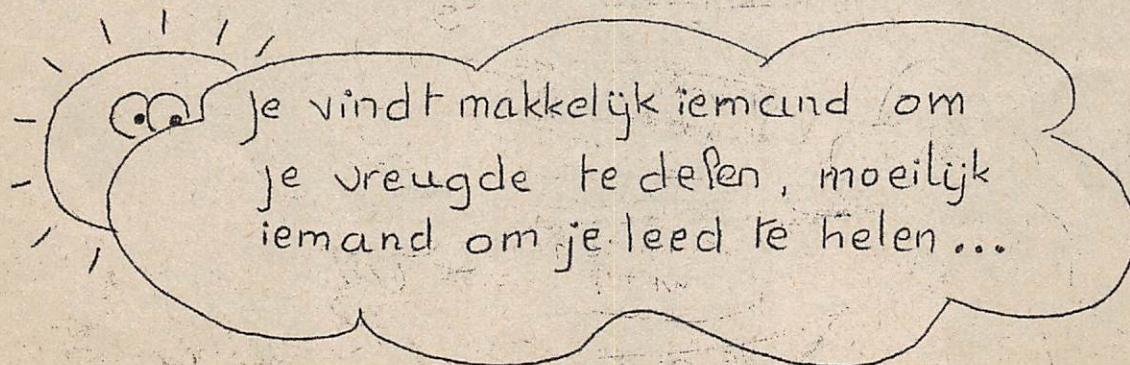 je vindt makkelijk iemand om
je vreugde te delen, moeilijk
iemand om je leed te helen...